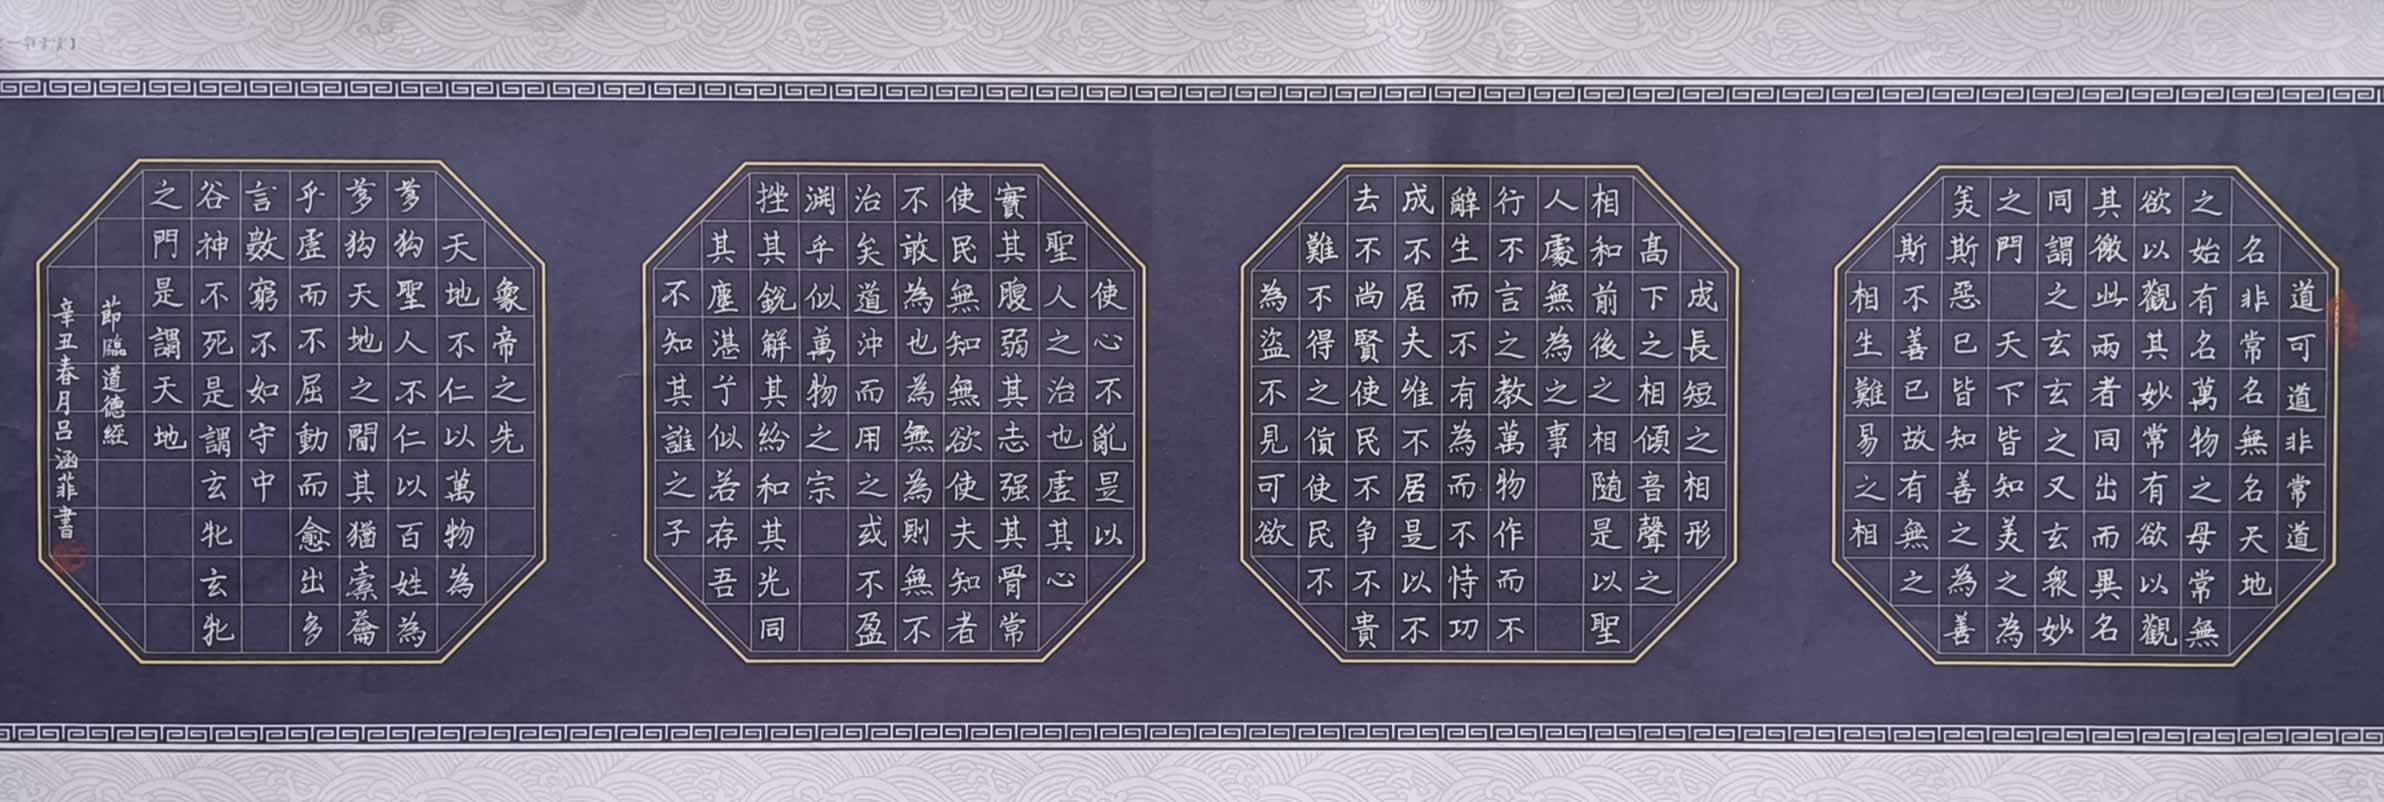 道可道非常道
名非常名無名天地
之始有名萬物之母常無
欲以觀其妙常有欲以觀
其徼此兩者同出而異名
同謂之玄玄之又玄衆妙
之門天下皆知美之為
美斯惡已皆知善之為善
斯不善已故有無之
相生難易之相
成長短之相形
高下之相傾音聲之
相和前後之相随是以聖
人處無為之事
行不言之教萬物作而不
辭生而不有為而不恃功
成不居夫唯不居是以不
去不尚賢使民不争不貴
難不得之貨使民不
為盜不見可欲
使心不亂是以
聖人之治也虛其心
實其腹弱其志强其骨常
使民無知無欲使夫知者
不敢為也為無為則無不
治矣道沖而用之或不盈
淵乎似萬物之宗
挫其銳解其紛和其光同
其塵湛兮似若存吾
不知其誰之子
象帝之先
天地不仁以萬物為
芻狗聖人不仁以百姓為
芻狗天地之間其猶橐籥
乎虛而不屈動而愈出多
言數窮不如守中
谷神不死是謂玄牝玄牝
之門是謂天地
節臨道德經
辛丑春月吕涵菲書